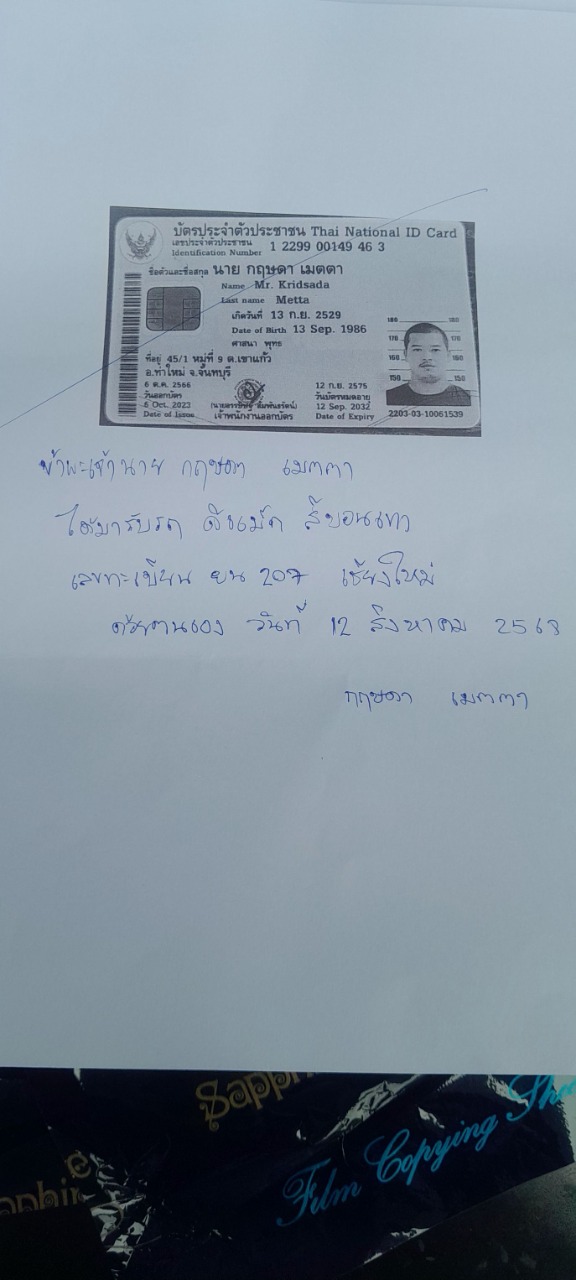 บัตรประจำตัวประชาชน Thai National ID Card
เลขประจำตัวประชาชน 1 2299 00149 46 3
Identification Number
ชื่อตัวและชื่อสกุล นาย กฤษดา เมตตา
Name Mr. Kridsada
Last name Metta
เกิดวันที่ 13 ก.ย. 2529
Date of Birth 13 Sep. 1986
ศาสนา พุทธ
ที่อยู่ 45/1 หมู่ที่ 9 ต.เขาแก้ว
อ.ท่าใหม่ จ.จันทบุรี
6 ต.ค. 2566
วันออกบัตร
6 Oct. 2023
Date of Issue
เจ้าพนักงานออกบัตร
12 ก.ย. 2575
วันบัตรหมดอายุ
12 Sep. 2032
Date of Expiry
180 180
170 170
160 160
150 150
2203-03-10061539
ข้าพเจ้านาย กฤษดา เมตตา
ได้มารับรถ สีบอนเทา
เลขทะเบียน ขน 207 เชียงใหม่
ด้วยตนเอง วันที่ 12 สิงหาคม 2568
กฤษดา เมตตา
Sapphi
Film Copying